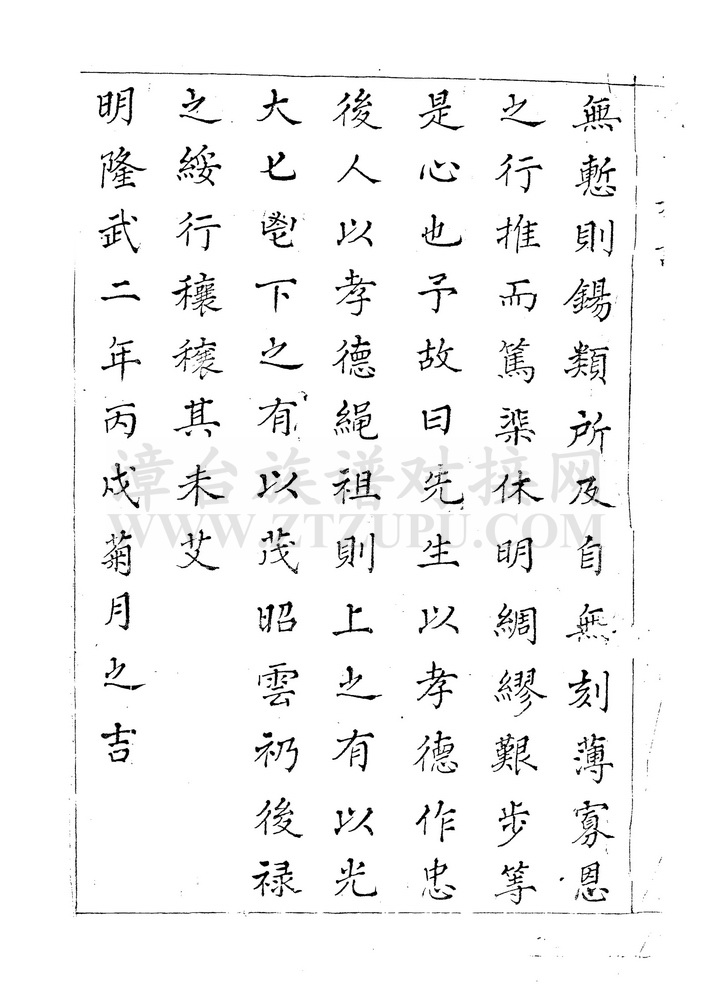 無慙則錫類所及自無刻薄寡恩
之行推而篤渠休明綢繆艱步等
是心也予故曰先生以孝德作忠
後人以孝德繩祖則上之有以光
大七鬯下之有以茂昭雲礽後禄
之綏行穰穰其未艾
明隆武二年丙戌菊月之吉
漳台族谱对接网
WWW.ZTZUPU.COM